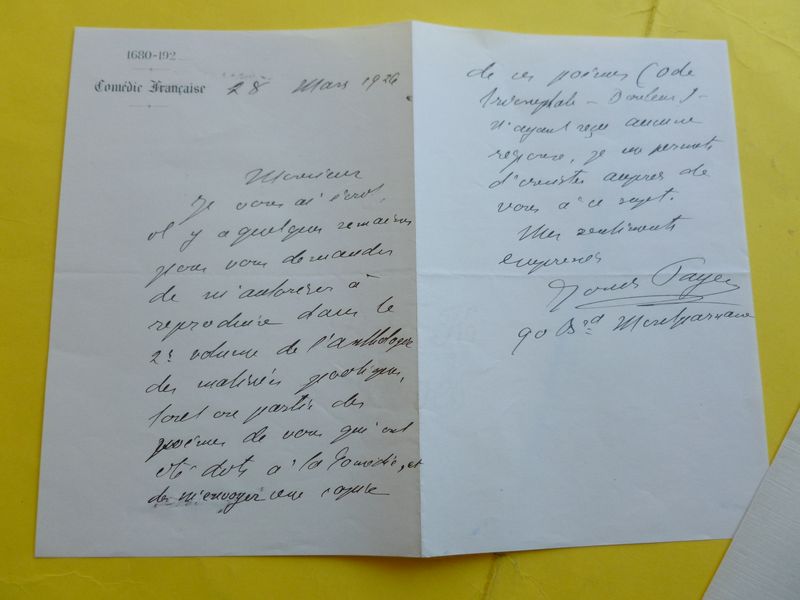 1680-192
Comédie Française
28 Mars 1926
Monsieur
Je vous ai écrit,
il y a quelques semaines
pour vous demander
de m'autoriser à
reproduire dans le
2e volume de l'anthologie
des matinées poétiques,
tout ou partie des
poèmes de vous qui ont
été dits à la Comédie, et
de m'envoyer une copie
de ces poèmes (Ode
triomphale - Douleur) -
N'ayant reçu aucune
réponse, je me permets
d'insister auprès de
vous à ce sujet.
Mes sentiments
empressés
Louis Payen
90 Bd Montparnasse